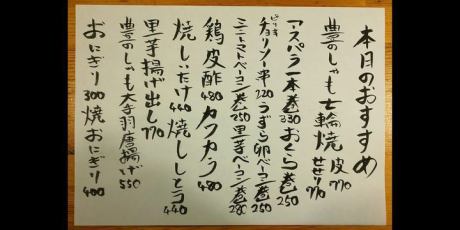 本日のおすすめ
豊のしゃも七輪焼 皮770 せせり770
アスパラ一本巻330 おくら巻250
ピリ辛チョリソー串220 うずら卵ベーコン巻250
ミニトマトベーコン巻250 里芋ベーコン巻280
鶏皮酢480 カワカラ480
焼しいたけ440 焼ししとう440
里芋揚げ出し770
豊のしゃも大手羽唐揚げ550
おにぎり300 焼おにぎり400